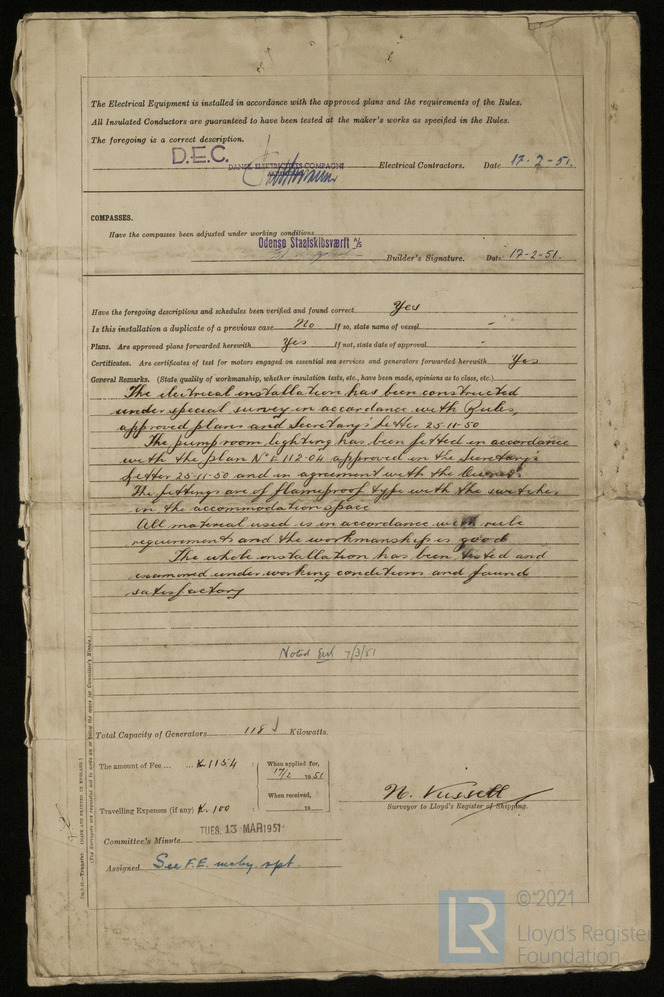 The Electrical Equipment is installed in accordance with the approved plans and the requirements of the Rules.
All Insulated Conductors are guaranteed to have been tested at the maker's works as specified in the Rules.
The foregoing is a correct description.
D.E.C. DANSK ELEKTRICITETS COMPAGNI Electrical Contractors. Date 17-2-51.
COMPASSES.
Have the compasses been adjusted under working conditions
Odense Staalskibsværft A/S
Builder's Signature. Date 17-2-51.
Have the foregoing descriptions and schedules been verified and found correct Yes
Is this installation a duplicate of a previous case No If so, state name of vessel -
Plans. Are approved plans forwarded herewith Yes If not, state date of approval -
Certificates. Are certificates of test for motors engaged on essential sea services and generators forwarded herewith Yes
General Remarks. (State quality of workmanship, whether insulation tests, etc., have been made, opinions as to class, etc.)
The electrical installation has been constructed
under special survey in accordance with Rules,
approved plans and Secretary's letter 25-11-50
The pump room lighting has been fitted in accordance
with the plan No E 112-04 approved in the Secretary's
letter 25-11-50 and in agreement with the
The fittings are of flameproof type with the switches
in the accommodation space
All material used is in accordance with rule
requirements and the workmanship is good
The whole installation has been tested and
examined under working conditions and found
satisfactory
Noted 7/3/51
Total Capacity of Generators 118 Kilowatts.
The amount of Fee ... ... K.1154 : When applied for,
17/2 1951
When received,
Travelling Expenses (if any) K.100 : 19
N. Russell
Surveyor to Lloyd's Register of Shipping.
TUES. 13 MAR 1951
Committee's Minute
Assigned See F.E. mchy. rpt.
Transfer. (MADE AND PRINTED IN ENGLAND.)
(The Surveyors are requested not to write on or below the space for Committee's Minute.)
LR
© 2021
Lloyd's Register
Foundation